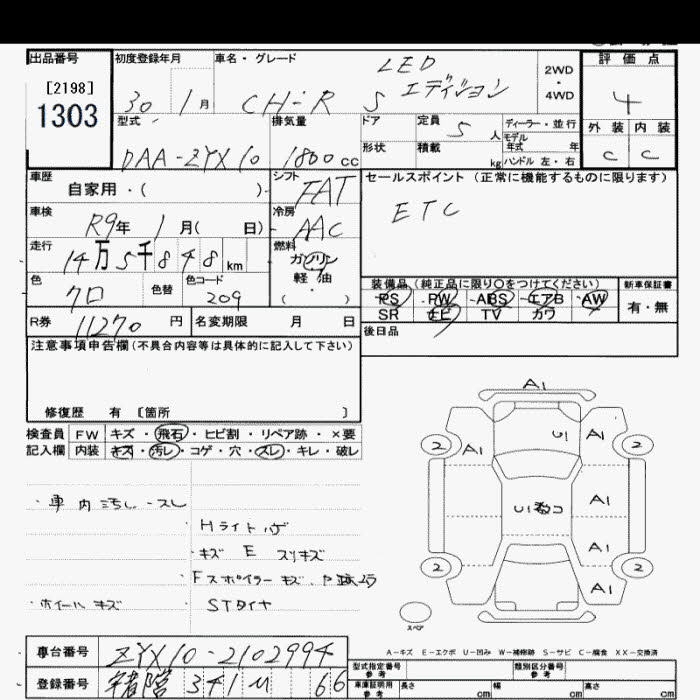 出品番号
[2198]
1303
初度登録年月
30 1月
車名・グレード
CH-R S LED エディション
2WD・4WD
評価点
4
外装 内装
C C
型式
DAA-ZYX10
排気量
1800cc
ドア
定員 5人
ディーラー・並行
モデル年式 年
形状
積載 kg
ハンドル 左・右
車歴
自家用・( )
シフト
FAT
セールスポイント (正常に機能するものに限ります)
ETC
車検
R9年 1月( 日)
冷房
AAC
走行
14万5千848km
燃料
ガソリン
軽・油
( ・ )
色
クロ
色替
色コード
209
装備品 (純正品に限り○をつけてください)
PS・PW・ABS・エアB・AW
SR ナビ TV カワ
新車保証書
有・無
R券 11270円
名変期限 月 日
後日品
注意事項申告欄(不具合内容等は具体的に記入して下さい)
修復歴 有 〔箇所 〕
検査員記入欄
FW キズ・飛石・ヒビ割・リペア跡・×要
内装 キズ・汚レ・コゲ・穴・スレ・キレ・破レ
・車内汚レ・スレ
Hライトハゲ
キズ E スリキズ
Fスポイラーキズ
・ホイールキズ
STタイヤ
A1
2 A1 U1 A1 2
A1
A1
2 A1 2
スペア
A-キズ E-エクボ U-凹み W-補修跡 S-サビ C-腐食 XX-交換済
車台番号
ZYX10-2102994
登録番号
341 66
型式指定番号 参考
類別区分番号 参考
車庫証明用 参考
長さ cm
幅 cm
高さ cm